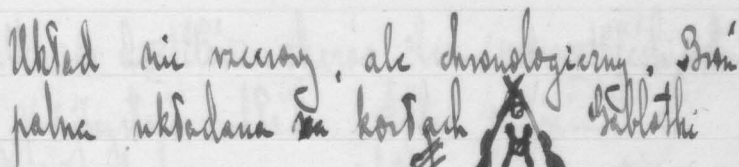 Układ nie rzeczowy, ale chronologiczny. Broń
palna układana na kozłach Gablotki